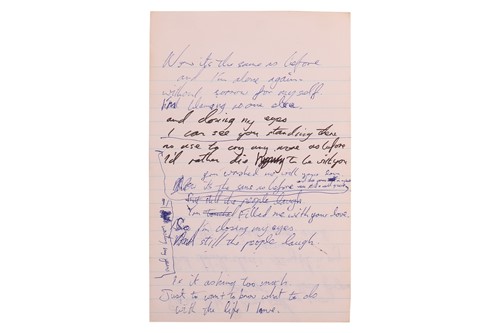 Now it's the same as before
and I'm alone again
without sorrow for myself
blaming some else.
and closing my eyes
I can see you standing there
no use to cry any more as before
I'd rather die to be with you
you washed me with your
it's the same as before
still the people laugh
You filled me with your love.
So I'm closing my eyes
still the people laugh
Is it asking too much
Just to want to know what to do
with the life I love.